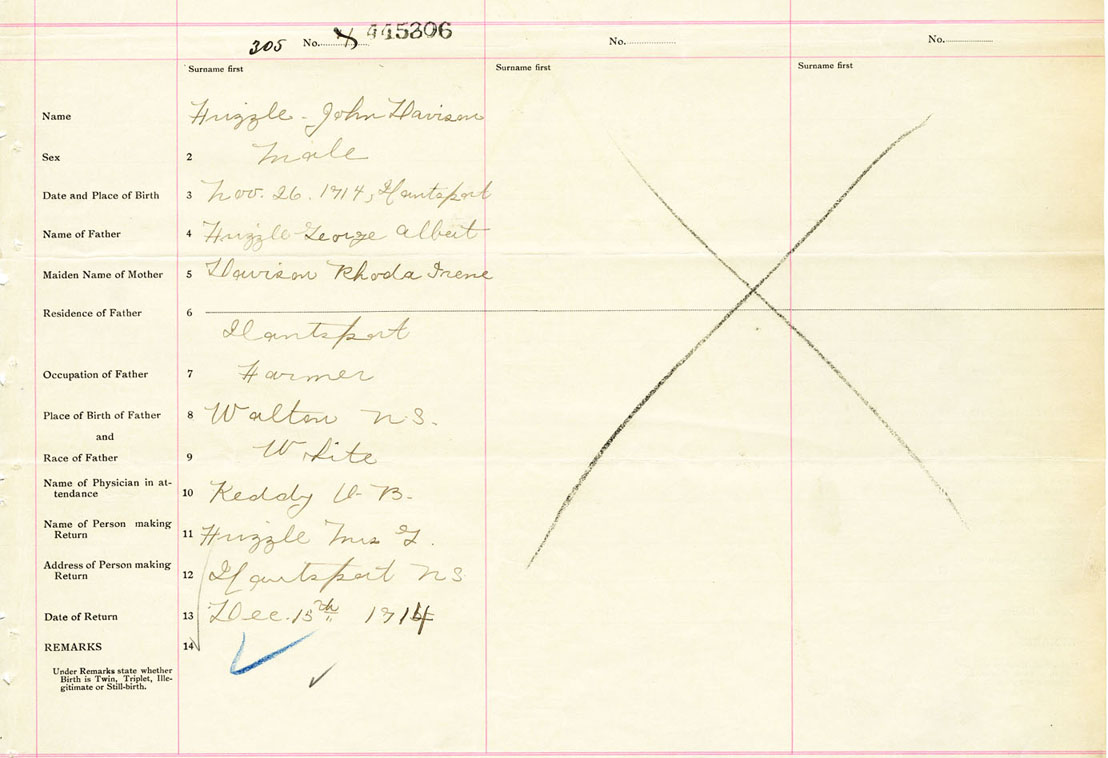 305 No. 445306 No. No.
Surname first Surname first Surname first
Name Frizzle - John Davison
Sex 2 Male
Date and Place of Birth 3 Nov. 26. 1914, Hantsport
Name of Father 4 Frizzle George Albert
Maiden Name of Mother 5 Davison Rhoda Irene
Residence of Father 6
Hantsport
Occupation of Father 7 Farmer
Place of Birth of Father 8 Walton N.S.
and
Race of Father 9 White
Name of Physician in at-
tendance 10 Keddy B.
Name of Person making
Return 11 Frizzle Mrs G.
Address of Person making
Return 12 Hantsport NS
Date of Return 13 Dec. 15th 1914
REMARKS 14
Under Remarks state whether
Birth is Twin, Triplet, Ille-
gitimate or Still-birth.